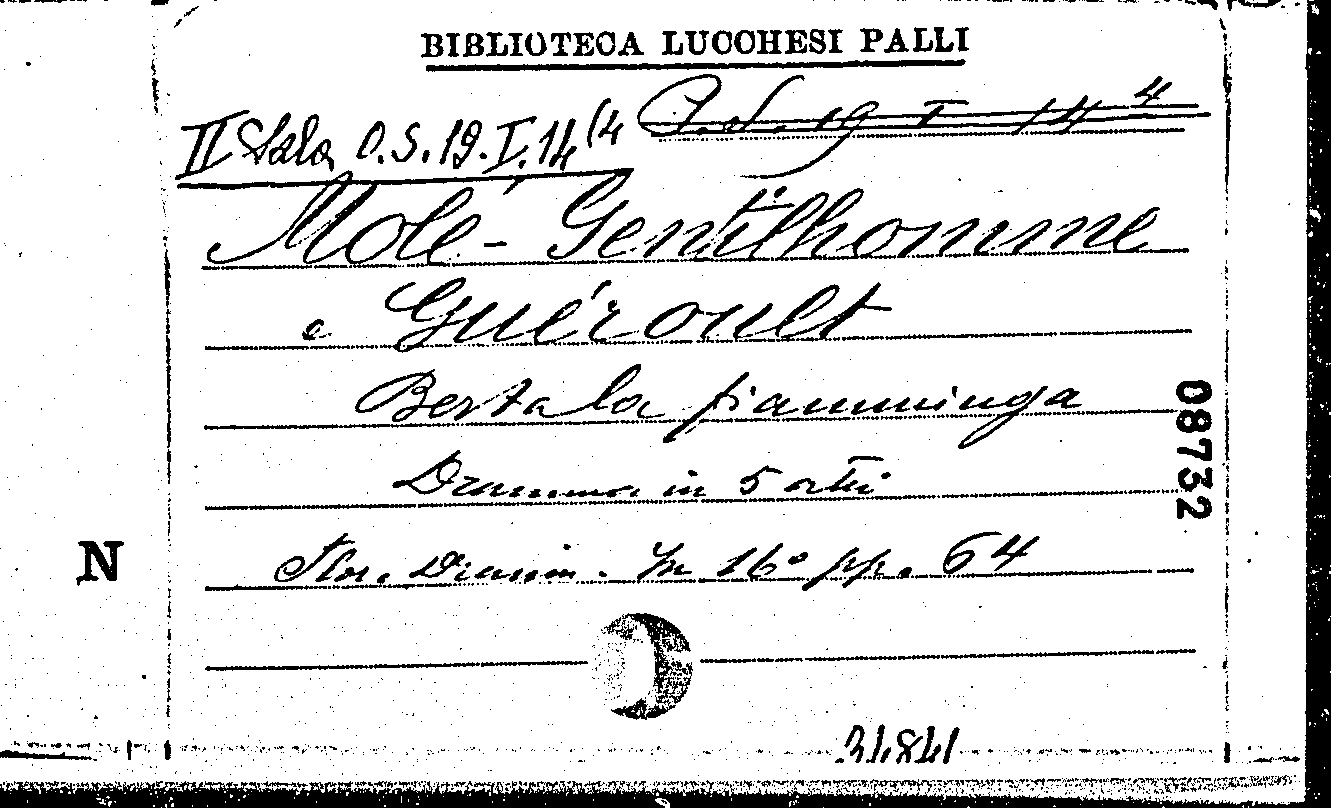 BIBLIOTECA LUCCHESI PALLI
II Sala O.S.19.I.14(4
O.S. 19 I 14 4
Molé-Gentilhomme
e Guéroult
Berta la fiamminga
Dramma in 5 atti
In 16º pp. 64
08732
N
34841